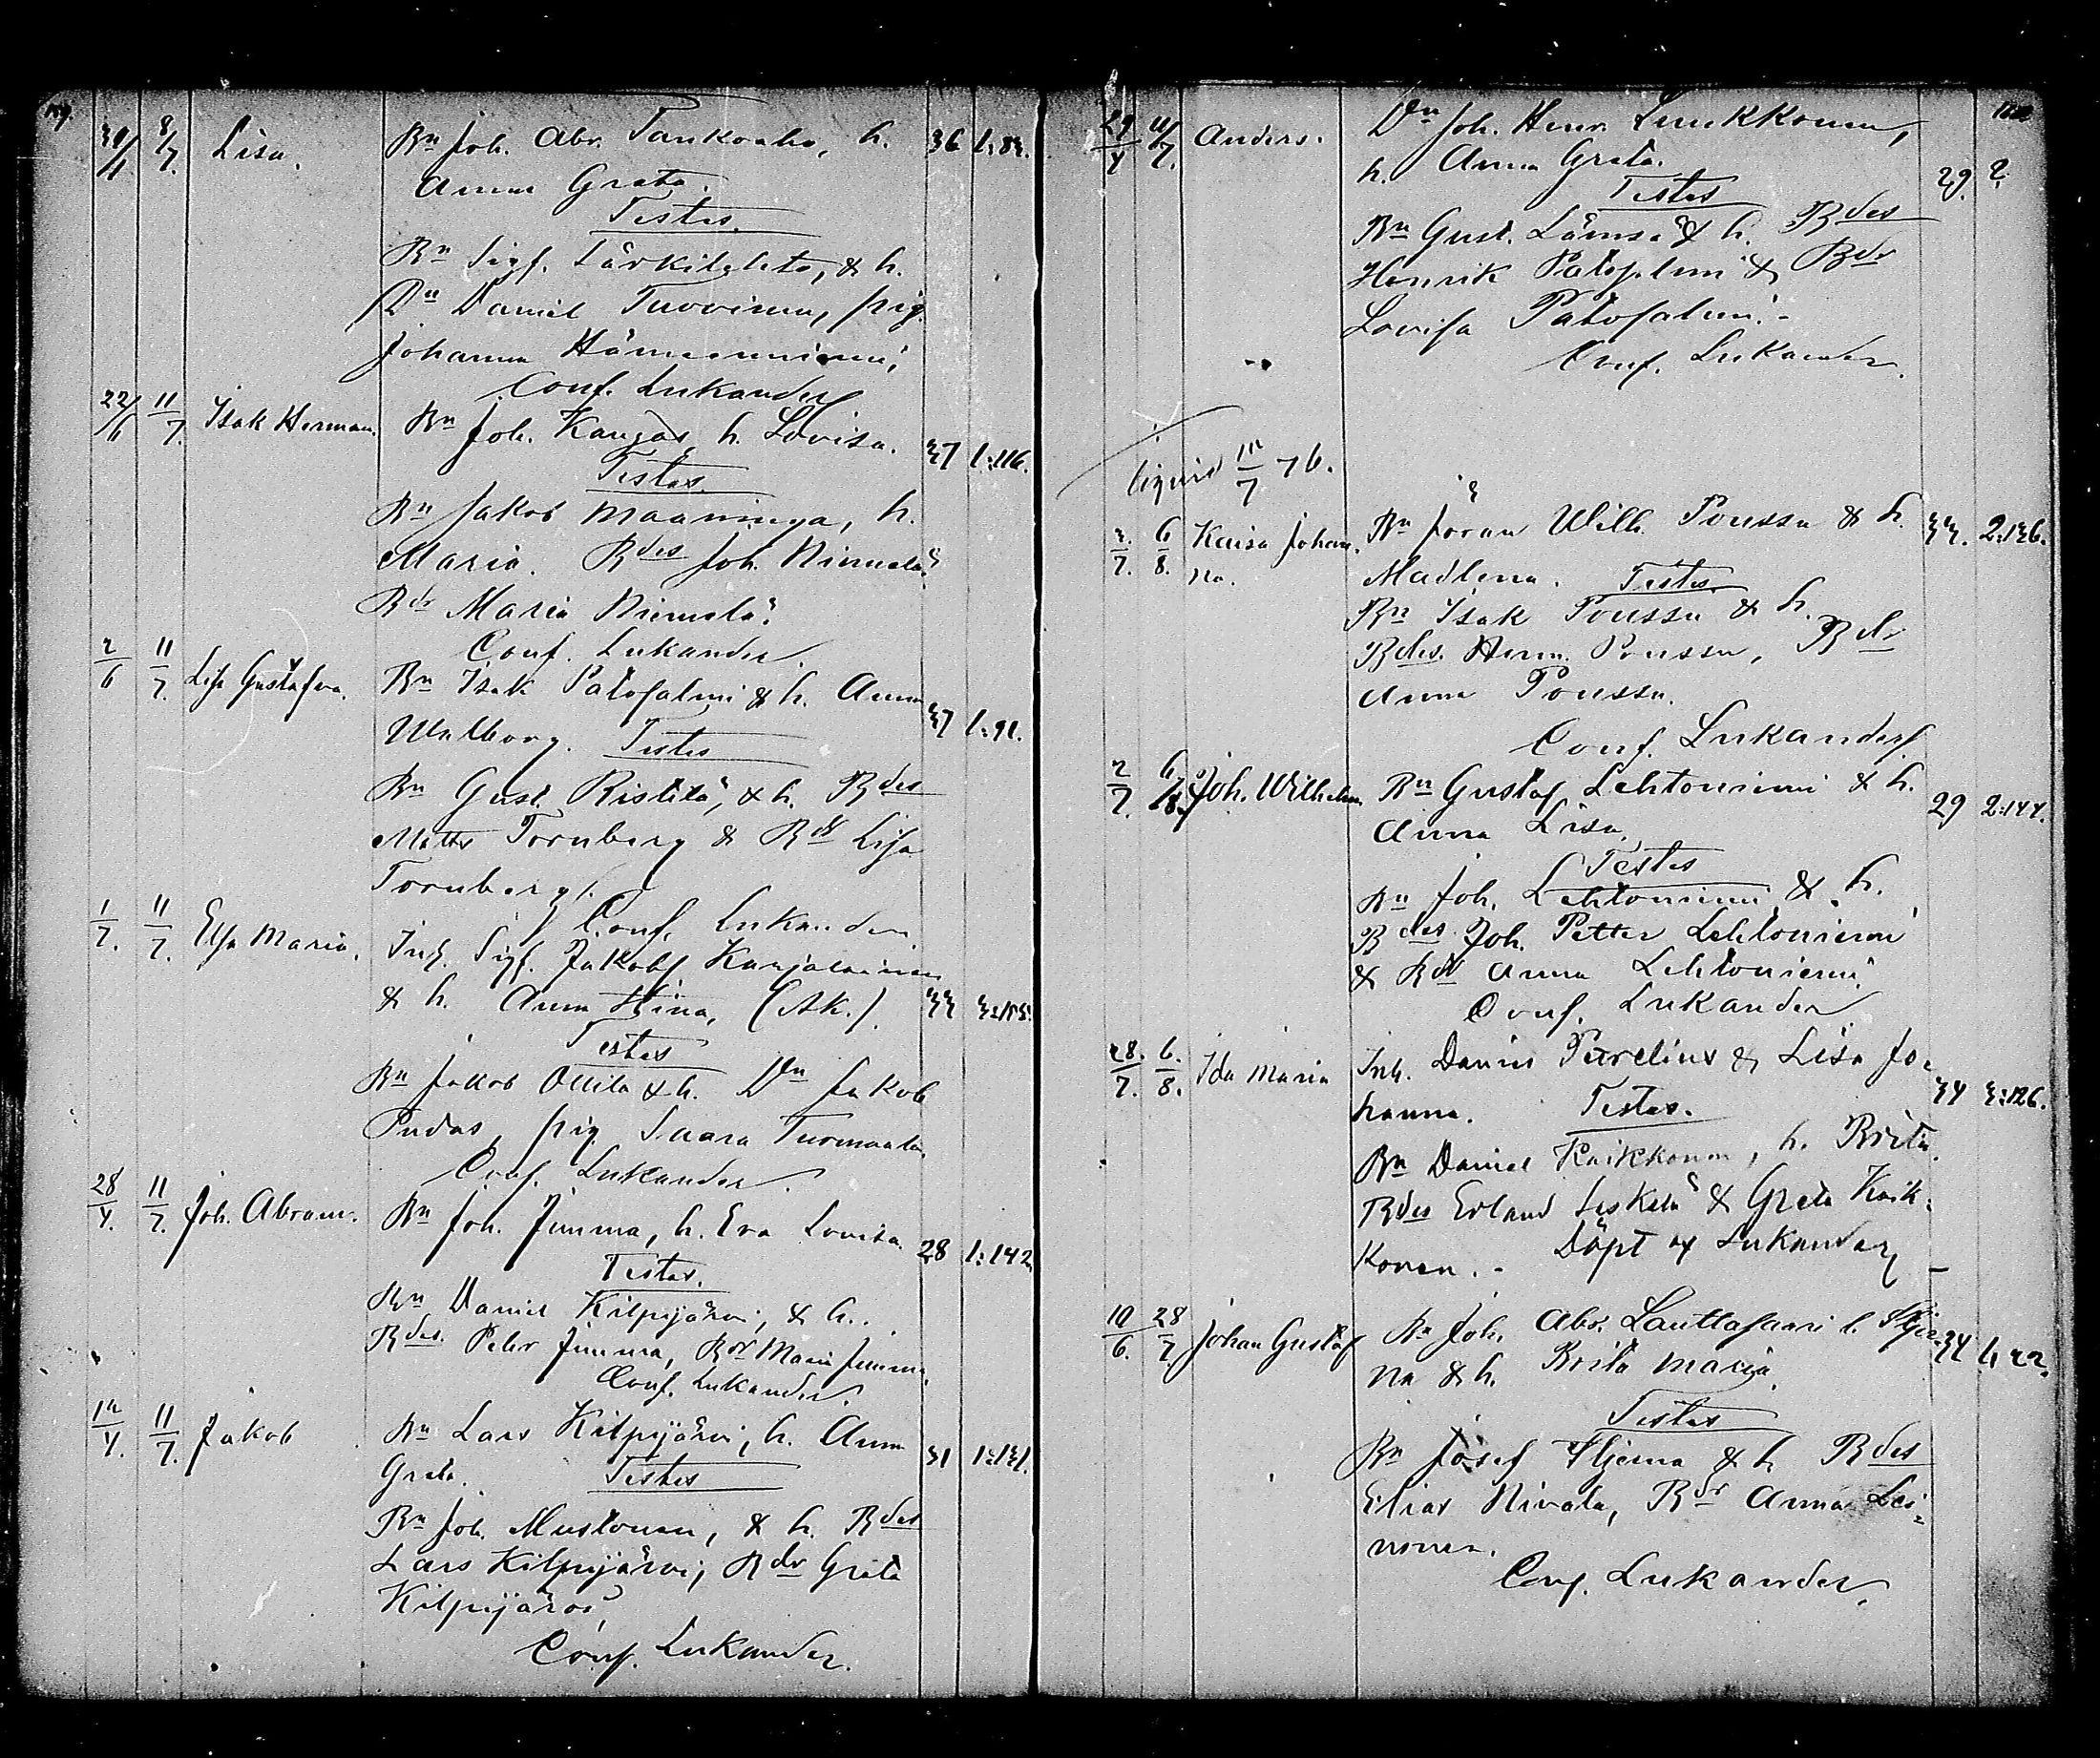 159.
8/7. Lisa. Bn Joh. Abr. Tankoaho, h. 36 1:83.
Anna Greta.
Testes.
Bn Sigf. Särkilehto, & h.
Dn Daniel Tuovinen, pig.
Johanna Hämeenniemi,
Conf. Lukander
22/6 11/7. Isak Herman. Bn Joh. Kangas, h. Lovisa. 37 1:116.
Testes.
Bn Jakob Maaninga, h.
Maria. Bdes Joh. Niemelä,
Bdr Maria Niemelä.
Conf. Lukander.
2/6 11/7. Lisa Gustafva. Bn Isak Patosalmi & h. Anna
Walborg. Testes 37 1:91.
Bn Gust. Ristilä, & h. Bdes
Matts Tornberg & Bdr Lisa
Tornberg.
Conf. Lukander.
1/7. 11/7. Elsa Maria. Inh. Sigf. Jakobs Karjalainen
& h. Anna Stina, (Ak.). 33 3:155.
Testes
Bn Jakob Ollila & h. Dn Jakob
Pudas, pig Saara Turmaala.
Conf. Lukander.
28/4. 11/7. Joh. Abram. Bn Joh. Jimma, h. Eva Lovisa. 28 1:142.
Testes.
Bn Daniel Kilpijärvi, & h.
Bdes. Peter Jimma, Bdr Maria Jimma.
Conf. Lukander.
14/4. 11/7. Jakob Bn Lars Kilpijärvi, h. Anna 31 1:131.
Greta. Testes
Bn Joh. Mustonen, & h. Bdes
Lars Kilpijärvi, Bdr Greta
Kilpijärvi,
Conf. Lukander.
29/4 11/7. Anders. Dn Joh. Henr. Luukkonen,
h. Anna Greta. 29. 2.
Testes
Bn Gust. Lämsä & h. Bdes
Henrik Patosalmi & Bdr
Lovisa Patosalmi.-
Conf. Lukander.
/7 76.
3/7. 6/8. Kaisa Johan- Bn Jöran Wilh. Poussu & h. 33. 2:136.
na. Madlena. Testes.
Bn Isak Poussu & h.
Bdes. Herm. Poussu, Bdr
Anna Poussu.
Conf. Lukander
2/7. 6/8. Joh. Wilhelm. Bn Gustaf Lehtoniemi & h. 29 2:144.
Anna Lisa.
Testes
Bn Joh. Lehtoniemi & h.
Bdes Joh. Petter Lehtoniemi
& Bdr Anna Lehtoniemi.
Conf. Lukander
28./7. 6./8. Ida Maria Inh. Daniel Purelius & Lisa Jo-
hanna. Testes. 34 3:126.
Bn Daniel Kaikkonen, h. Brita.
Bdes Erland Leskelä & Greta Kaik-
konen.- Döpt af Lukander
10/6. 28/7. Johan Gustaf Bn Joh. Abr. Lauttasaari l. Stjer- 34 1:22.
na & h. Brita Maria.
Testes
Bn Josef Stjerna & h. Bdes
Elias Nivala, Bdr Anna Lei-
nonen.
Conf. Lukander.